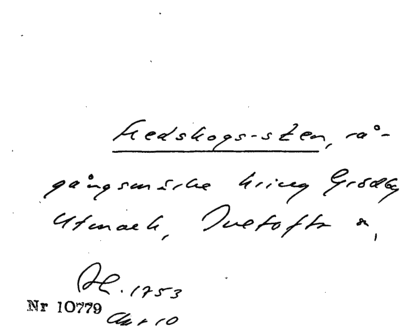 fredskogs-sten, rå-
gångsmärke kring Grödby
Utmark, Tuetofta s,
Ak. 1753
Nr 10779
Akt 10